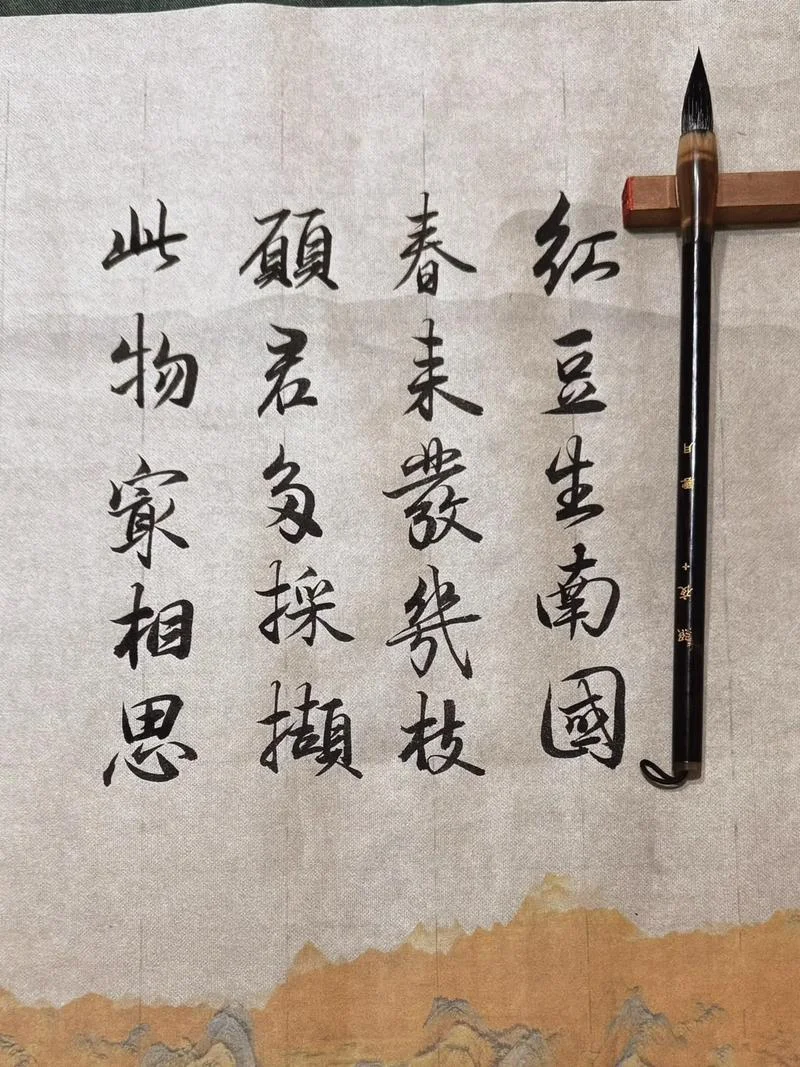 紅豆生南國
春来發幾枝
願君多採擷
此物寂相思